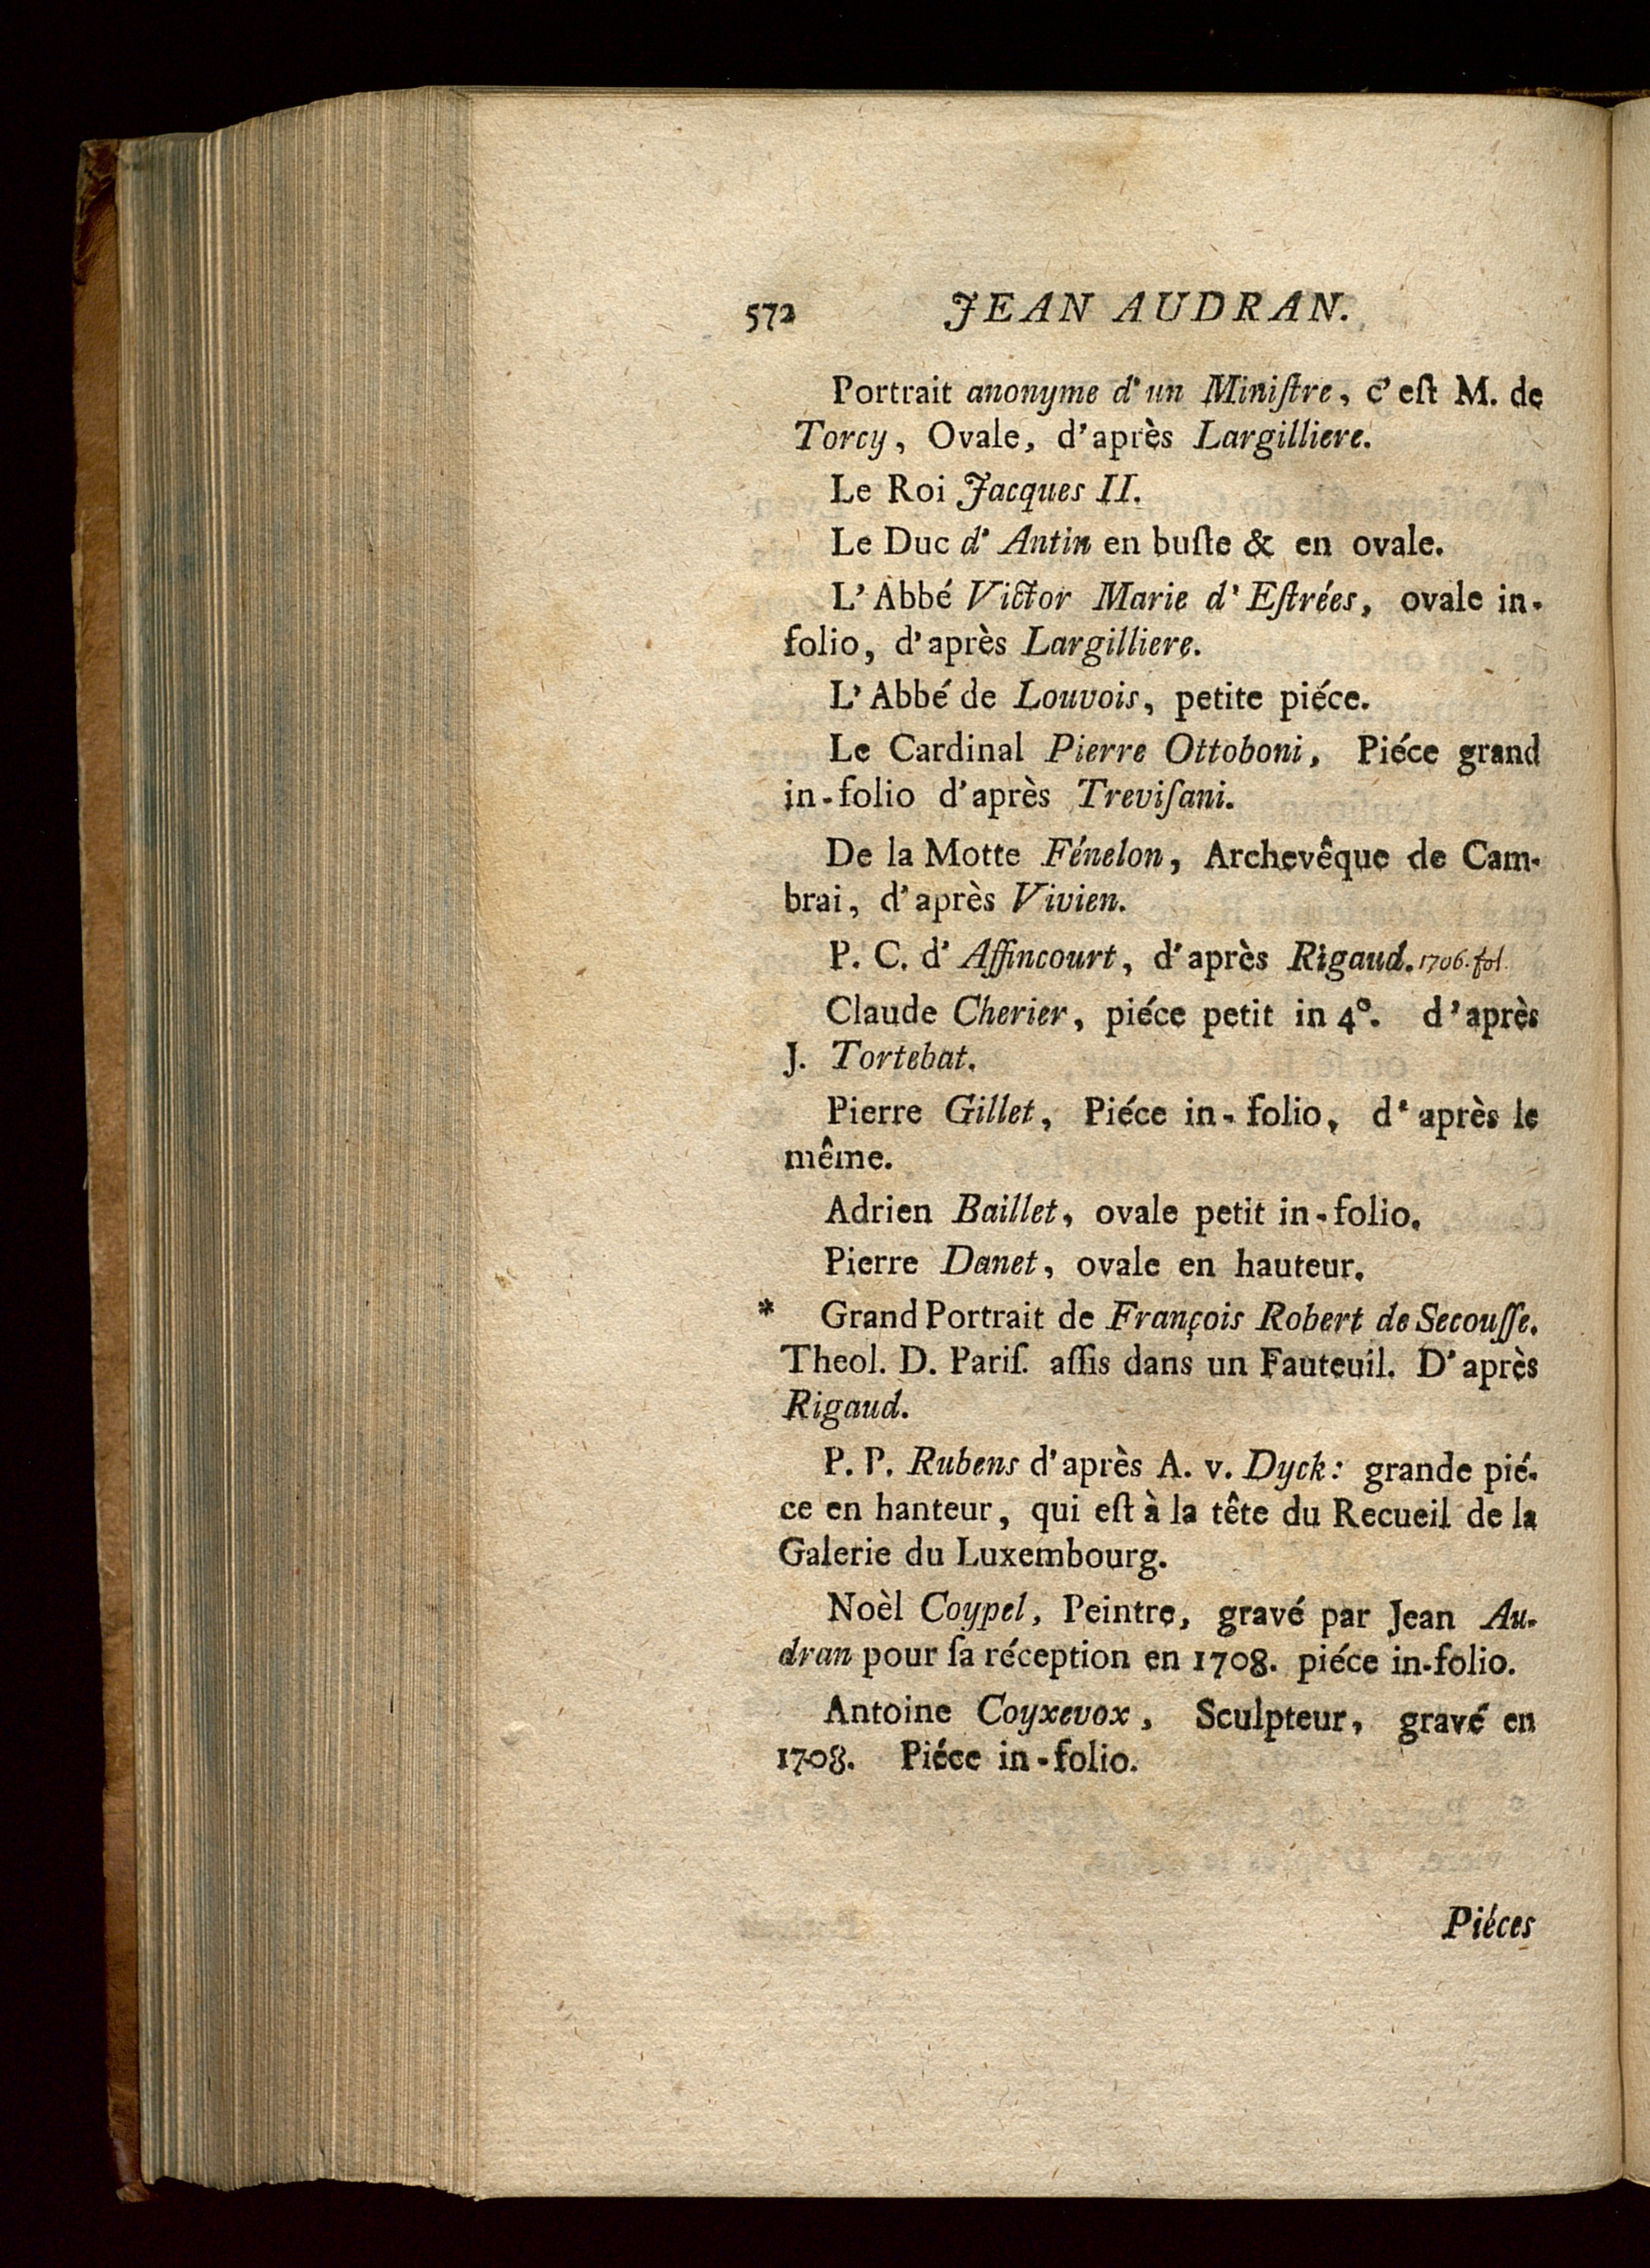 572 JEAN AUDRAN.
Portrait anonyme d'un Miniſtre, c'eſt M. de
Torcy, Ovale, d'après Largilliere.
Le Roi Jacques II.
Le Duc d'Antin en buſte & en ovale.
L'Abbé Victor Marie d'Eſtrées, ovale in-
folio, d'après Largilliere.
L'Abbé de Louvois, petite piéce.
Le Cardinal Pierre Ottoboni, Piéce grand
in-folio d'après Treviſani.
De la Motte Fénelon, Archevêque de Cam-
brai, d'après Vivien.
P. C. d'Aſſincourt, d'après Rigaud. 1706. fol.
Claude Cherier, piéce petit in 4°. d'après
J. Tortebat.
Pierre Gillet, Piéce in-folio, d'après le
même.
Adrien Baillet, ovale petit in-folio.
Pierre Danet, ovale en hauteur.
* Grand Portrait de François Robert de Secouſſe.
Theol. D. Pariſ. aſſis dans un Fauteuil. D'après
Rigaud.
P. P. Rubens d'après A. v. Dyck: grande pié-
ce en hanteur, qui eſt à la tête du Recueil de la
Galerie du Luxembourg.
Noèl Coypel, Peintre, gravé par Jean Au-
dran pour ſa réception en 1708. piéce in-folio.
Antoine Coyxevox, Sculpteur, gravé en
1708. Piéce in-folio.
Piéces